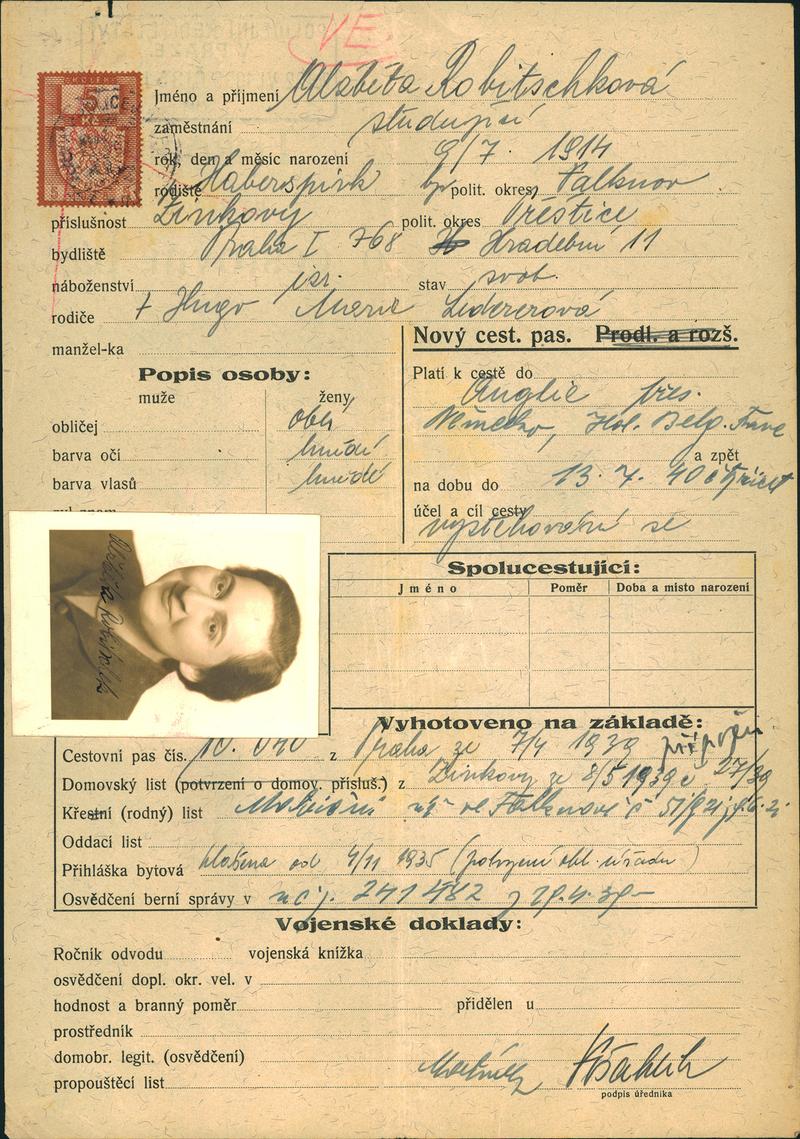 VE.
5
Jméno a příjmení Alžběta Robitschková
zaměstnání studující
rok, den a měsíc narození 9/7. 1914
rodiště Haberspirk polit. okres, Falknov
příslušnost Žinkovy polit. okres Přeštice
bydliště Praha I 768 Hradební 11
náboženství isr. stav svob.
rodiče † Hugo Marie Ledererová
manžel-ka
Nový cest. pas. Prodl. a rozš.
Popis osoby:
muže ženy
obličej obl.
barva očí hnědé
barva vlasů hnědé
Platí k cestě do
Anglie přes
Německo, Hol. Belg. Franc
a zpět
na dobu do 13. 7. 40 čtyřicet
účel a cíl cesty
vystěhování se
Alžběta Robitschková
Spolucestující:
Jméno Poměr Doba a místo narození
Vyhotoveno na základě:
Cestovní pas čís. 10.040 z Praha ze 7/4 1939
Domovský list (potvrzení o domov. přísluš.) z Žinkovy ze 8/5 1939 č 27/39
Křestní (rodný) list ve Falknově č
Oddací list
Přihláška bytová hlášena od 4/11 1935 (potvrzení obl. úřadu)
Osvědčení berní správy v n č j. 241482 z 29.4.39-
Vojenské doklady:
Ročník odvodu vojenská knížka
osvědčení dopl. okr. vel. v
hodnost a branný poměr přidělen u
prostředník
domobr. legit. (osvědčení)
propouštěcí list
podpis úředníka